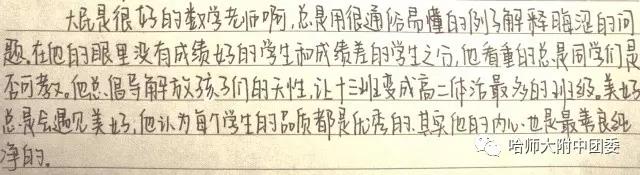 大民是很好的数学老师啊,总是用很通俗易懂的例子解释晦涩的问
题。在他的眼里没有成绩好的学生和成绩差的学生之分,他看重的总是同学们是
否可教。他总倡导解放孩子们的天性,让十三班变成高二体活最多的班级。美好
总是会遇见美好,他认为每个学生的品质都是优秀的,其实他的内心也是最善良纯
净的。
哈师大附中团委